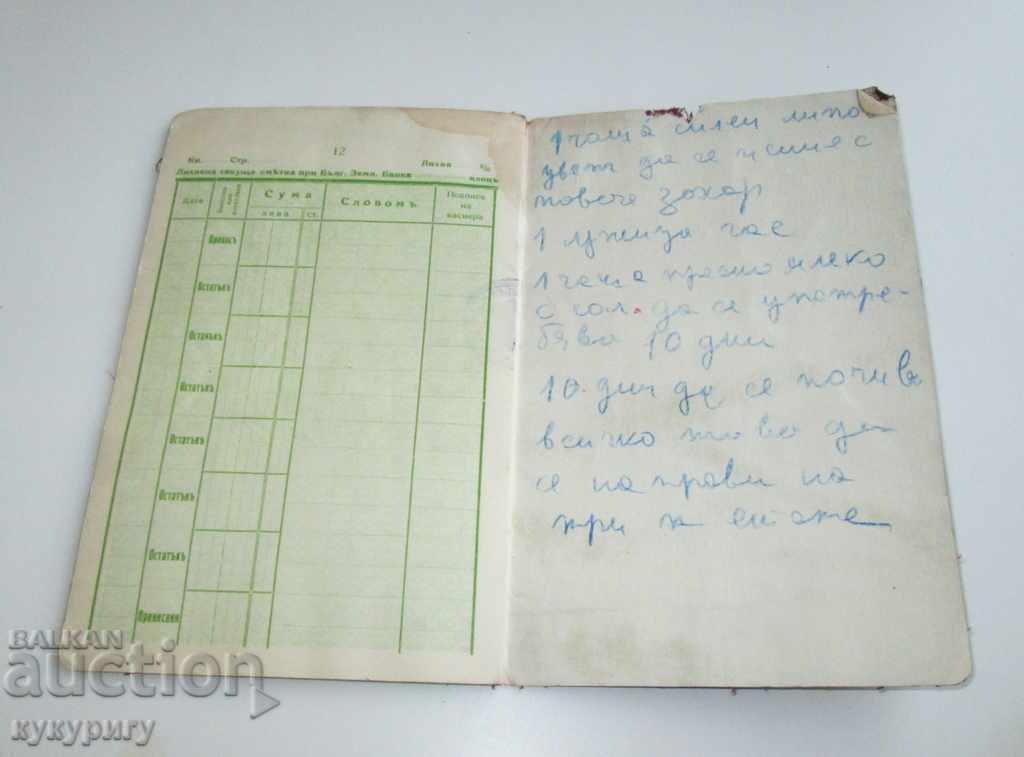 12
Кн. Стр. Лихва %
Лихвена текуща смѣтка при Бълг. Земл. Банка клонъ
Дата
Сума
лева ст.
Словомъ
Подписъ на касиера
Преносъ
Остатъкъ
Остатъкъ
Остатъкъ
Остатъкъ
Остатъкъ
Пренисени
1 чаша силен липо
цвет да се с
повече захар
1 час
1 чаша прясно млеко
с сол. да се употре-
бява 10 дни
10. дни да се почива
всичко това да
се направи на
три
BALKAN
auction
кукуригу